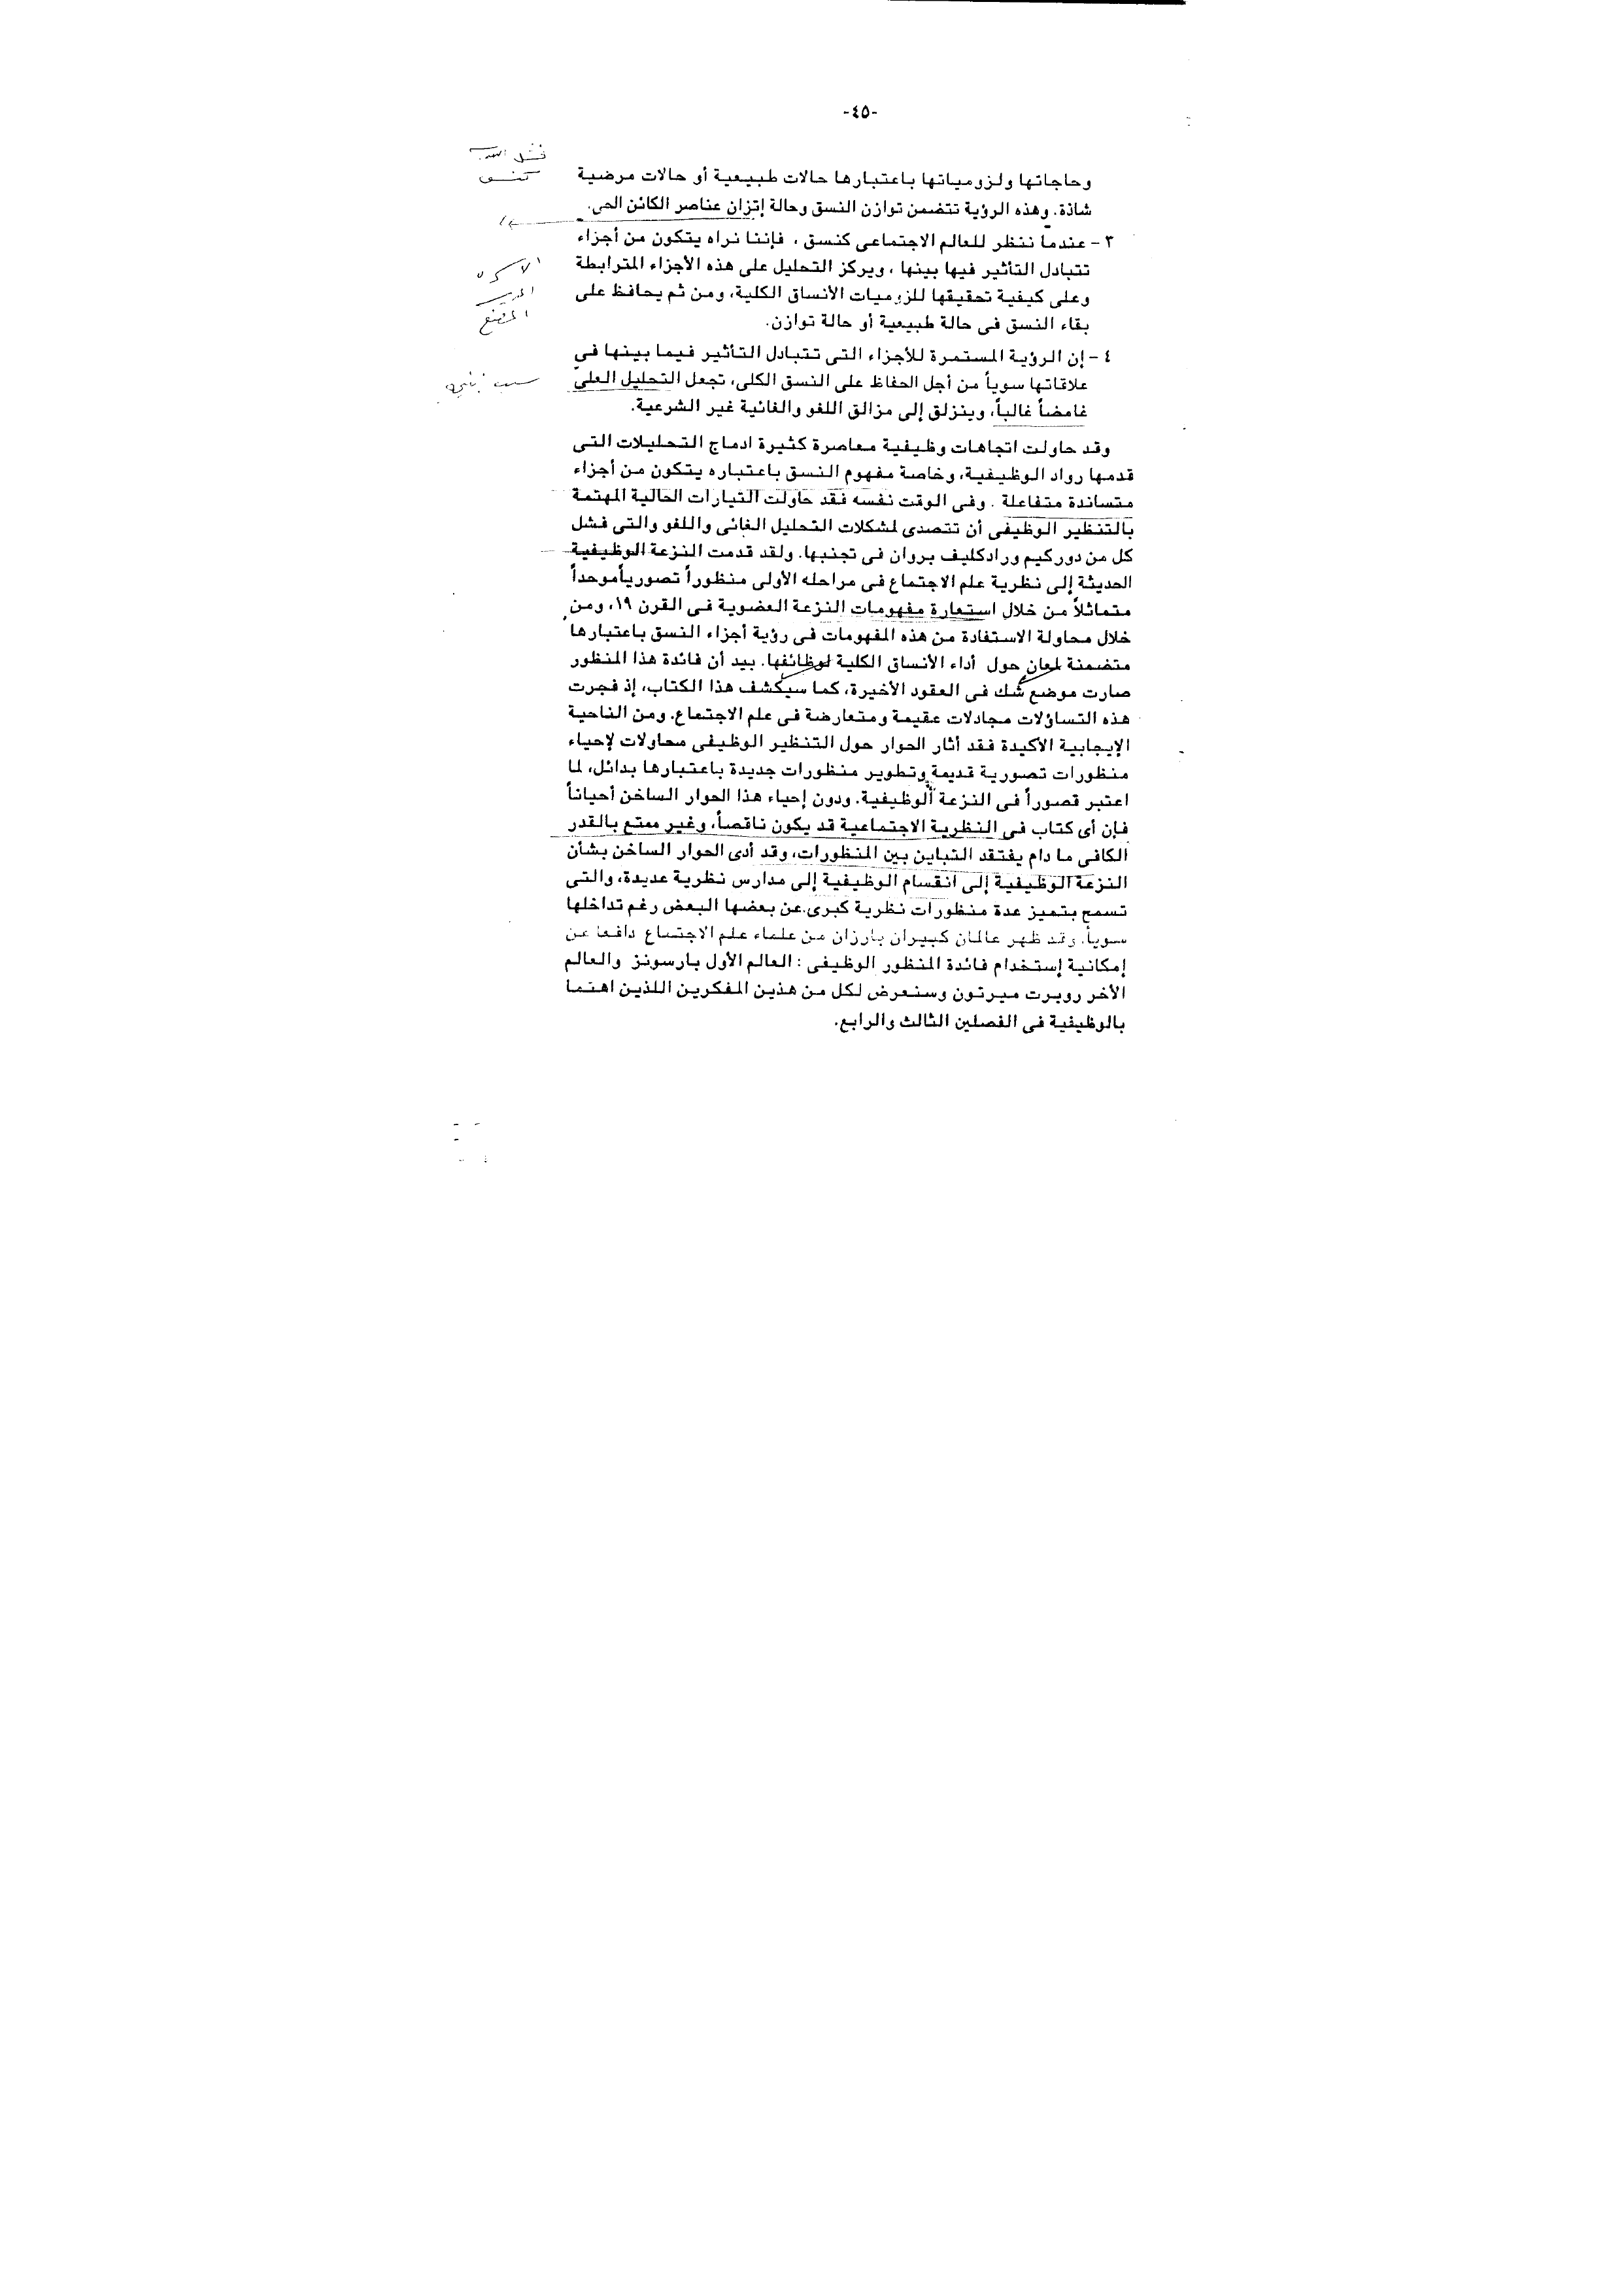 -٤٥-
وحاجاتها ولزومياتها باعتبارها حالات طبيعية أو حالات مرضية
كنسق
شاذة. وهذه الرؤية تتضمن توازن النسق وحالة إتزان عناصر الكائن الحى.
٣ - عندما ننظر للعالم الاجتماعى كنسق ، فإننا نراه يتكون من أجزاء
تتبادل التأثير فيها بينها ، ويركز التحليل على هذه الأجزاء المترابطة
وعلى كيفية تحقيقها للزوميات الأنساق الكلية، ومن ثم يحافظ على
المصنع
بقاء النسق فى حالة طبيعية أو حالة توازن.
٤ - إن الرؤية المستمرة للأجزاء التى تتبادل التأثير فيما بينها فى
علاقاتها سوياً من أجل الحفاظ على النسق الكلى، تجعل التحليل العلى
غامضاً غالباً، وينزلق إلى مزالق اللغو والغائية غير الشرعية.
وقد حاولت اتجاهات وظيفية معاصرة كثيرة ادماج التحليلات التى
قدمها رواد الوظيفية، وخاصة مفهوم النسق باعتباره يتكون من أجزاء
متساندة متفاعلة . وفى الوقت نفسه فقد حاولت التيارات الحالية المهتمة
بالتنظير الوظيفى أن تتصدى لمشكلات التحليل الغائى واللغو والتى فشل
كل من دوركيم ورادكليف بروان فى تجنبها. ولقد قدمت النزعة الوظيفية
الحديثة إلى نظرية علم الاجتماع فى مراحله الأولى منظوراً تصورياًموحداً
متماثلاً من خلال استعارة مفهومات النزعة العضوية فى القرن ١٩، ومن
خلال محاولة الاستفادة من هذه المفهومات فى رؤية أجزاء النسق باعتبارها
متضمنة لمعان حول أداء الأنساق الكلية لوظائفها. بيد أن فائدة هذا المنظور
صارت موضع شك فى العقود الأخيرة، كما سيكشف هذا الكتاب، إذ فجرت
هذه التساؤلات مجادلات عقيمة ومتعارضة فى علم الاجتماع. ومن الناحية
الإيجابية الأكيدة فقد أثار الحوار حول التنظير الوظيفى محاولات لإحياء
منظورات تصورية قديمة وتطوير منظورات جديدة باعتبارها بدائل، لما
اعتبر قصوراً فى النزعة الوظيفية. ودون إحياء هذا الحوار الساخن أحياناً
فإن أى كتاب فى النظرية الاجتماعية قد يكون ناقصاً، وغير ممتع بالقدر
الكافى ما دام يفتقد التباين بين المنظورات، وقد أدى الحوار الساخن بشأن
النزعة الوظيفية إلى انقسام الوظيفية إلى مدارس نظرية عديدة، والتى
تسمح بتميز عدة منظورات نظرية كبرى.عن بعضها البعض رغم تداخلها
سوياً. وقد ظهر عالمان كبيران بارزان من علماء علم الاجتماع دافعا عن
إمكانية إستخدام فائدة المنظور الوظيفى : العالم الأول بارسونز والعالم
الأخر روبرت ميرتون وسنعرض لكل من هذين المفكرين اللذين اهتما
بالوظيفية فى الفصلين الثالث والرابع.